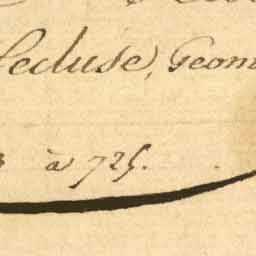 Lecluse, Geom
à 725.